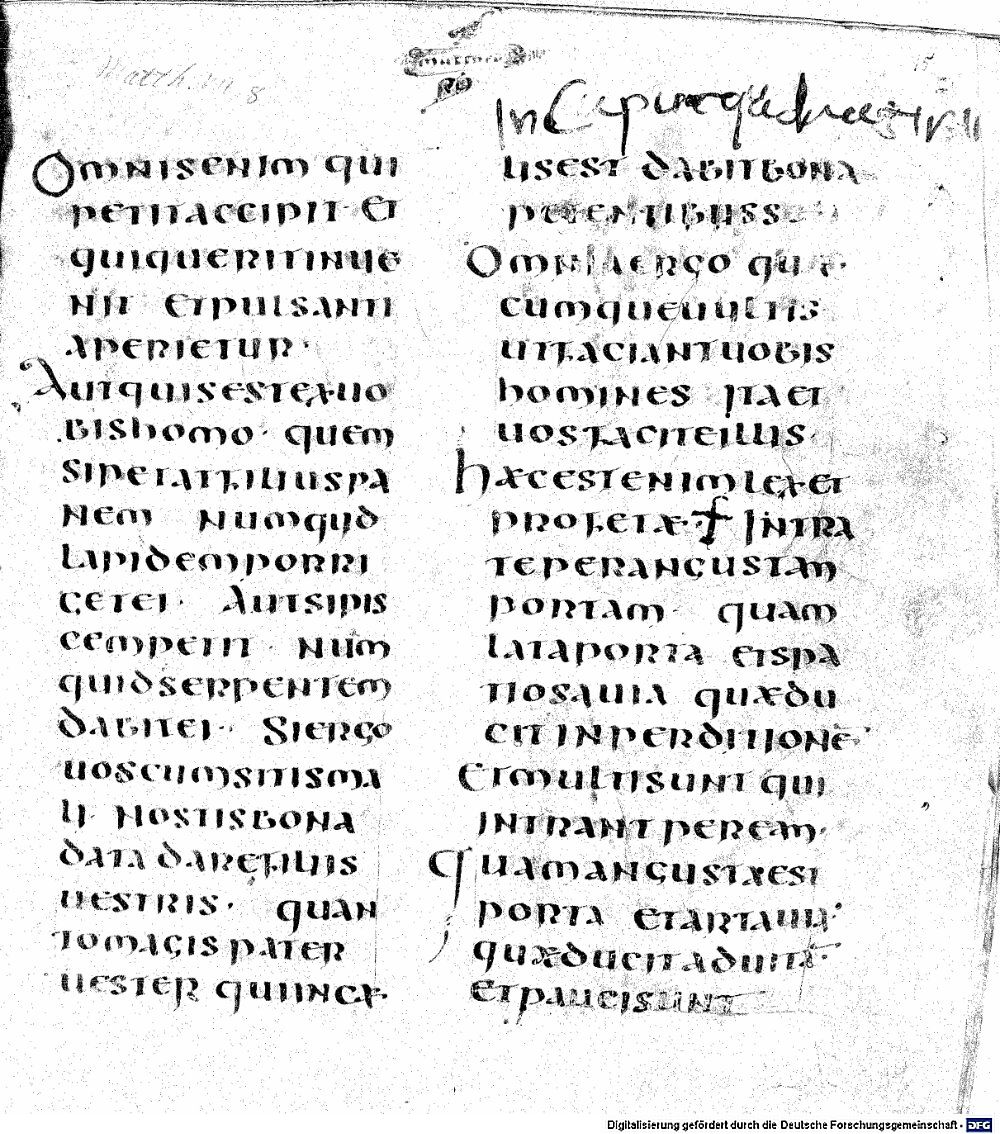 Matth. VII. 8
In Caput quadragesi
Omnisenim qui
petitaccipit· et
quiqueritinue
nit etpulsanti
aperietur·
Autquisestexuo
bishomo· quem
sipetatfiliuspa
nem numquid
lapidemporri
getei· Autsipis
cempetit· num
quidserpentem
dabitei· Siergo
uoscumsitisma
li· Nostisbona
data darefiliis
uestris· quan
tomagis pater
uester quiincæ·
lisest dabitbona
petentibuss
Omniaergo quæ·
cumqueuultis
utfaciantuobis
homines itaet
uosfaciteillis·
hæcestenimlexet
profetæ· Intra
teperangustam
portam· quam
lataporta etspa
tiosauia quædu
cit inperditionē·
Etmultisunt qui
intrant peream·
quamangustaest
porta etartauia·
quæducitaduitā·
etpaucisunt
Digitalisierung gefördert durch die Deutsche Forschungsgemeinschaft - DFG